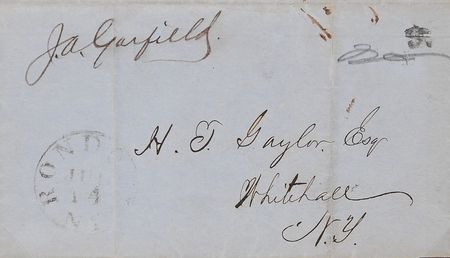 J. A. Garfield.
H. T. Gaylor. Esq
Whitehall
N.Y.
ROND
14